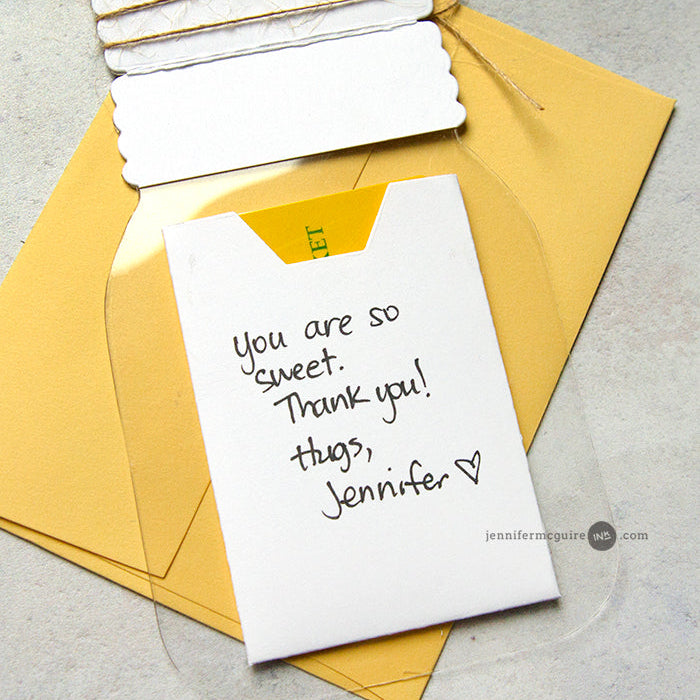 KET
You are so
sweet.
Thank you!
Hugs,
Jennifer
jennifermcguire INK .com